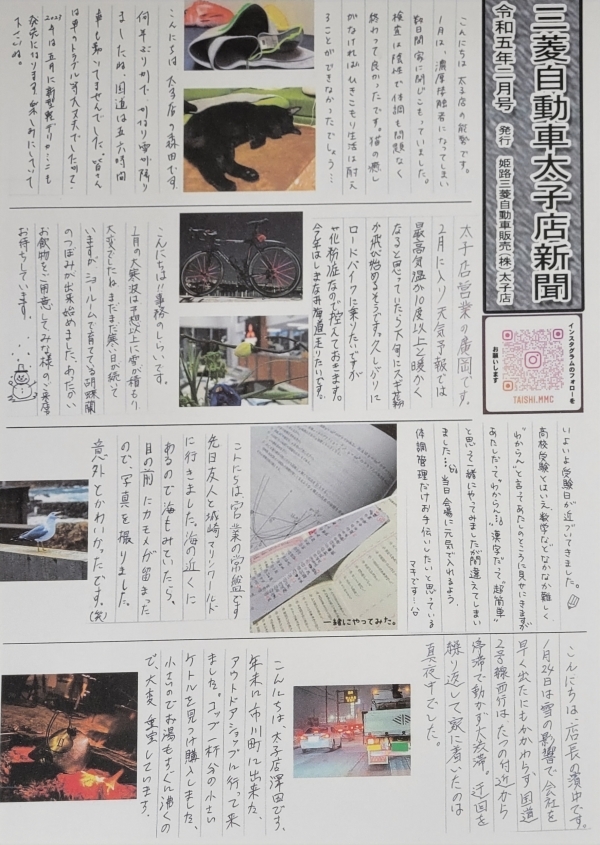 三菱自動車太子店新聞
令和五年二月号 発行 姫路三菱自動車販売(株)太子店
インスタグラムのフォローを
お願いします
TAISHI.MMC
こんにちは太子店の能勢です。
1月は、濃厚接触者になってしまい
数日間家に閉じこもっていました。
検査は陰性で体調も問題なく
終わって良かったです。猫の癒し
がなければひきこもり生活は耐え
ることができなかったでしょう…
こんにちは 太子店の森田です。
何年ぶりかで、かなり雪が降り
ましたね。国道は五六時間
車も動いてませんでした。皆さん
は車のトラブル等大丈夫でしたか?
2023年は五月に新型軽デリカミニも
発売になります。楽しみにしていて
下さいね。
太子店営業の廣岡です。
2月に入り天気予報では
最高気温が10度以上と暖かく
なると思っていたら大向にスギ花粉
が飛び始めるそうです。久しぶりに
ロードバイクに乗りたいですが
花粉症なので控えておきます。
今年はしまなみ海道走りたいです。
こんにちは!!事務のしらいです。
1月の大寒波は予想以上に雪が積もり
大変でしたね。まだまだ寒い日が続いて
いますが ショールームで育てている胡蝶蘭
のつぼみが出来始めました。あたたかい
お飲物をご用意して、みな様のご来店
お待ちしています。
いよいよ受験日が近づいてきました。
高校受験とはいえ、数学などなかなか難しく
"わからん"と言ってあたしのところに見せにきますが
あたしだって"わからん"。漢字だって"超簡単"
と思って一緒にやってみましたが間違えてしまい
ました…。当日会場に元気で入れるよう
体調管理だけお手伝いしたいと思っている
マキです…
一緒にやってみた。
こんにちは、営業の常盤です
先日友人と城崎マリンワールド
に行きました。海の近くに
あるので海もみていたら、
目の前にカモメが留まった
ので、写真を撮りました。
意外とかわいかったです、(笑)
こんにちは、店長の濱中です。
1月24日は雪の影響で会社を
早く出たにもかかわらず国道
2号線西行はたつの付近から
停滞で動かず大渋滞。迂回を
繰り返して家に着いたのは
真夜中でした。
こんにちは、太子店澤田です、
年末に市川町に出来た、
アウトドアショップへ行って来
ました。コップ一杯分の小さい
ケトルを見つけ購入しました、
小さいのでお湯もすぐに沸くの
で、大変 重宝しています、